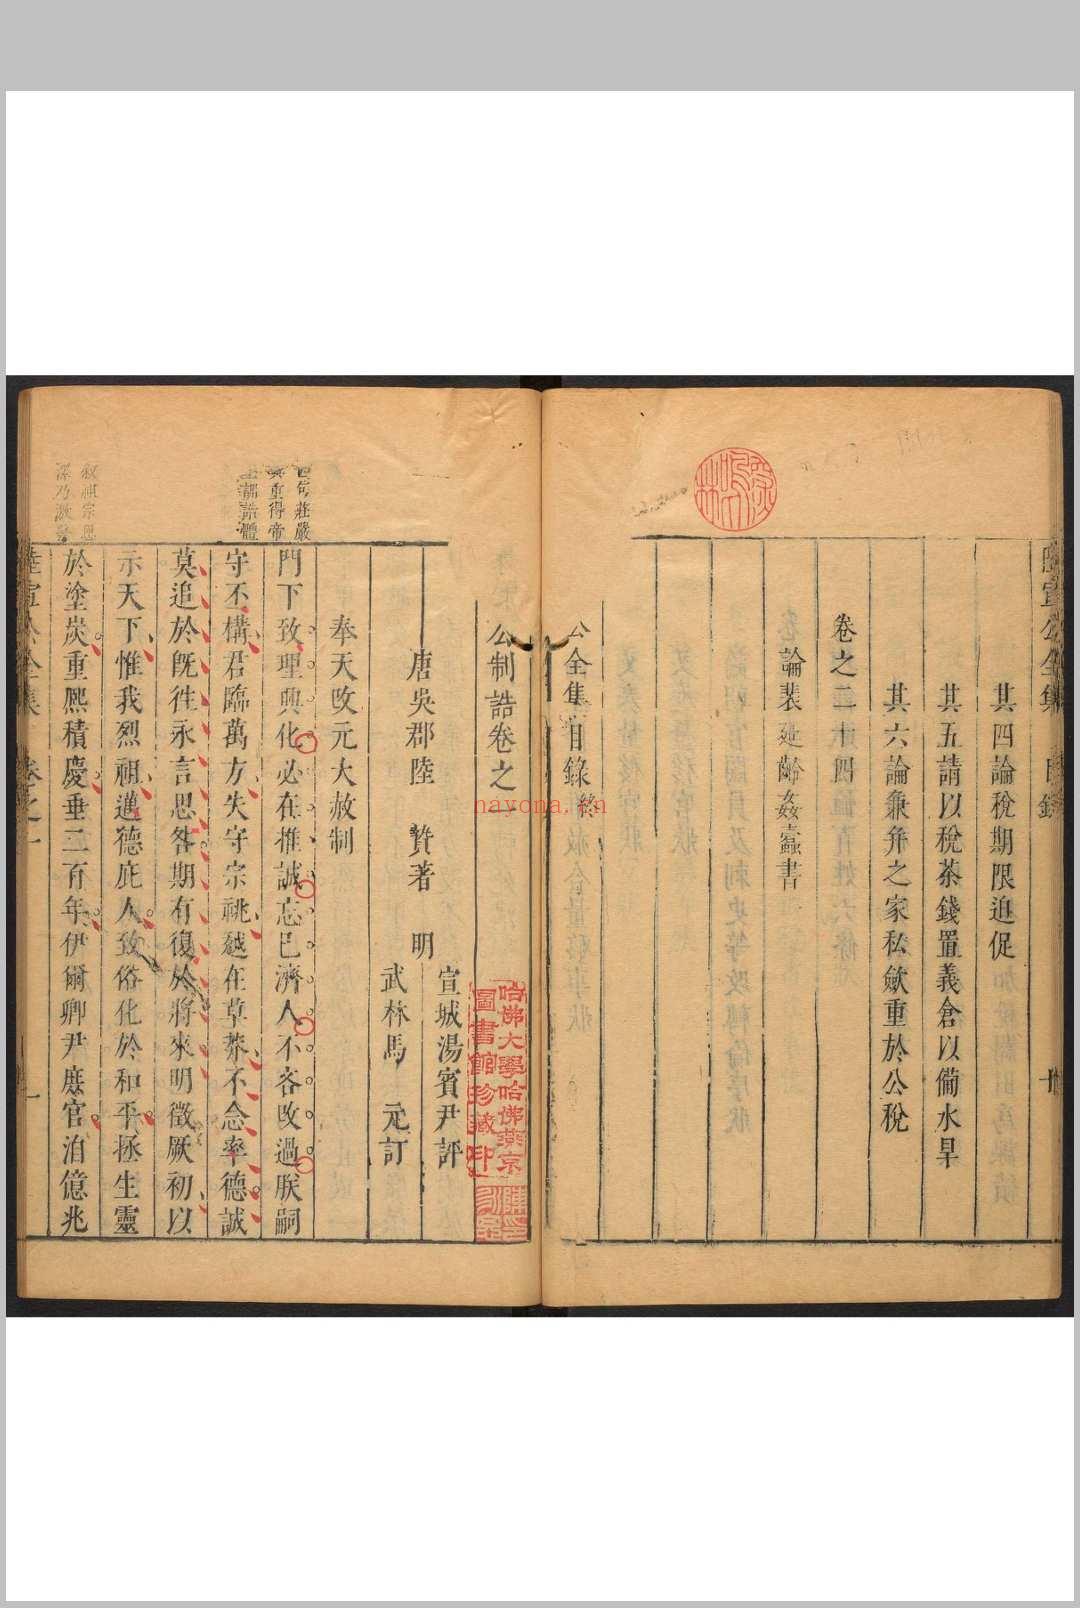 陸宣公全集 目錄 十
其四論稅期限迫促
其五請以稅茶錢置義倉以備水旱
其六論兼并之家私歛重於公稅
卷之二十四
論裴延齡姦蠹書
公全集目錄終
公制誥卷之一
唐吳郡陸 贄著 明
宣城湯賓尹評
武林馬 元訂
奉天改元大赦制
門下致理興化必在推誠忘已濟人不吝改過朕嗣
守丕構君臨萬方失守宗祧越在草莽不念率德誠
莫追於既往永言思咎期有復於將來明徵厥初以
示天下惟我烈祖邁德庇人致俗化於和平拯生靈
於塗炭重熙積慶垂二百年伊爾卿尹庶官洎億兆
句莊嚴
重得帝
誥體
叙祖宗恩
陸宣公全集 卷之一 一
哈佛大學哈佛燕京
圖書館珍藏印
nayona.cn